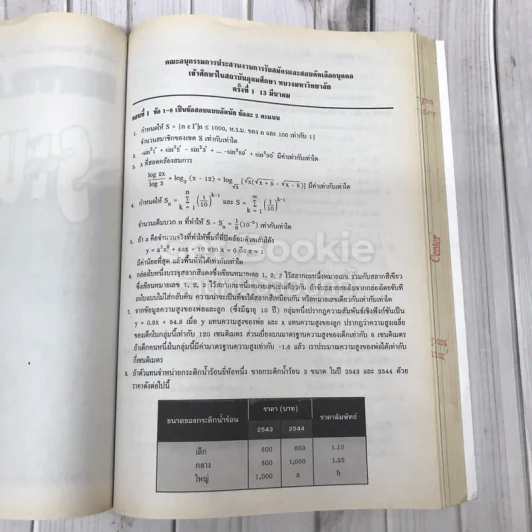 คณะอนุกรรมการประสานงานการรับสมัครและสอบคัดเลือกบุคคล
เข้าศึกษาในสถาบันอุดมศึกษา ทบวงมหาวิทยาลัย
ครั้งที่ 1 13 มีนาคม
ตอนที่ 1 ข้อ 1-8 เป็นข้อสอบแบบอัตนัย ข้อละ 2 คะแนน
1. กำหนดให้ S = {n ∈ I⁺|n ≤ 1000, ห.ร.ม. ของ n และ 100 เท่ากับ 1}
จำนวนสมาชิกของเซต S เท่ากับเท่าใด
2. -sin²1° + sin²2° - sin²3° + ... -sin²89° + sin²90° มีค่าเท่ากับเท่าใด
3. x ที่สอดคล้องสมการ
log 2x / log 3 + log₃ (x - 12) = log√3 [√x(√x + 5 - √x - 5)] มีค่าเท่ากับเท่าใด
4. กำหนดให้ Sn = n Σ k = 1 (1/10)^k-1 และ S = ∞ Σ k = 1 (1/10)^k-1
จำนวนเต็มบวก n ที่ทำให้ S - Sn = 1/9 (10⁻⁵) เท่ากับเท่าใด
5. ถ้า a คือจำนวนจริงที่ทำให้พื้นที่ที่ปิดล้อมด้วยเส้นโค้ง
มีค่าน้อยที่สุด แล้วพื้นที่ที่ได้เท่ากับเท่าใด
6. กล่องใบหนึ่งบรรจุสลากสีแดงซึ่งเขียนหมายเลข 1, 2, 3 ไว้สลากละหนึ่งหมายเลข รวมกับสลากสีเขียว
ซึ่งเขียนหมายเลข 1, 2, 3 ไว้สลากละหนึ่งหมายเลขเช่นเดียวกัน
7. จากข้อมูลความสูงของพ่อและลูก (ซึ่งมีอายุ 10 ปี) กลุ่มหนึ่งปรากฏความสัมพันธ์เชิงฟังก์ชันเป็น
y = 0.9x + 54.8 เมื่อ y แทนความสูงของพ่อ และ x แทนความสูงของลูก ปรากฏว่าความสูงเฉลี่ย
ของเด็กในกลุ่มนี้เท่ากับ 120 เซนติเมตร ส่วนเบี่ยงเบนมาตรฐานความสูงของเด็กเท่ากับ 8 เซนติเมตร
ถ้าเด็กคนหนึ่งในกลุ่มนี้มีค่ามาตรฐานความสูงเท่ากับ -1.5 แล้ว เราประมาณความสูงของพ่อได้เท่ากับ
กี่เซนติเมตร
8. ถ้าตัวแทนจำหน่ายกระติกน้ำร้อนยี่ห้อหนึ่ง ขายกระติกน้ำร้อน 3 ขนาด ในปี 2543 และ 2544 ด้วย
ราคาดังต่อไปนี้
ขนาดของกระติกน้ำร้อน ราคา (บาท) ราคาสัมพัทธ์
2543 2544
เล็ก 600 660 1.10
กลาง 800 1,000 1.25
ใหญ่ 1,000 a b
Cookie
Center